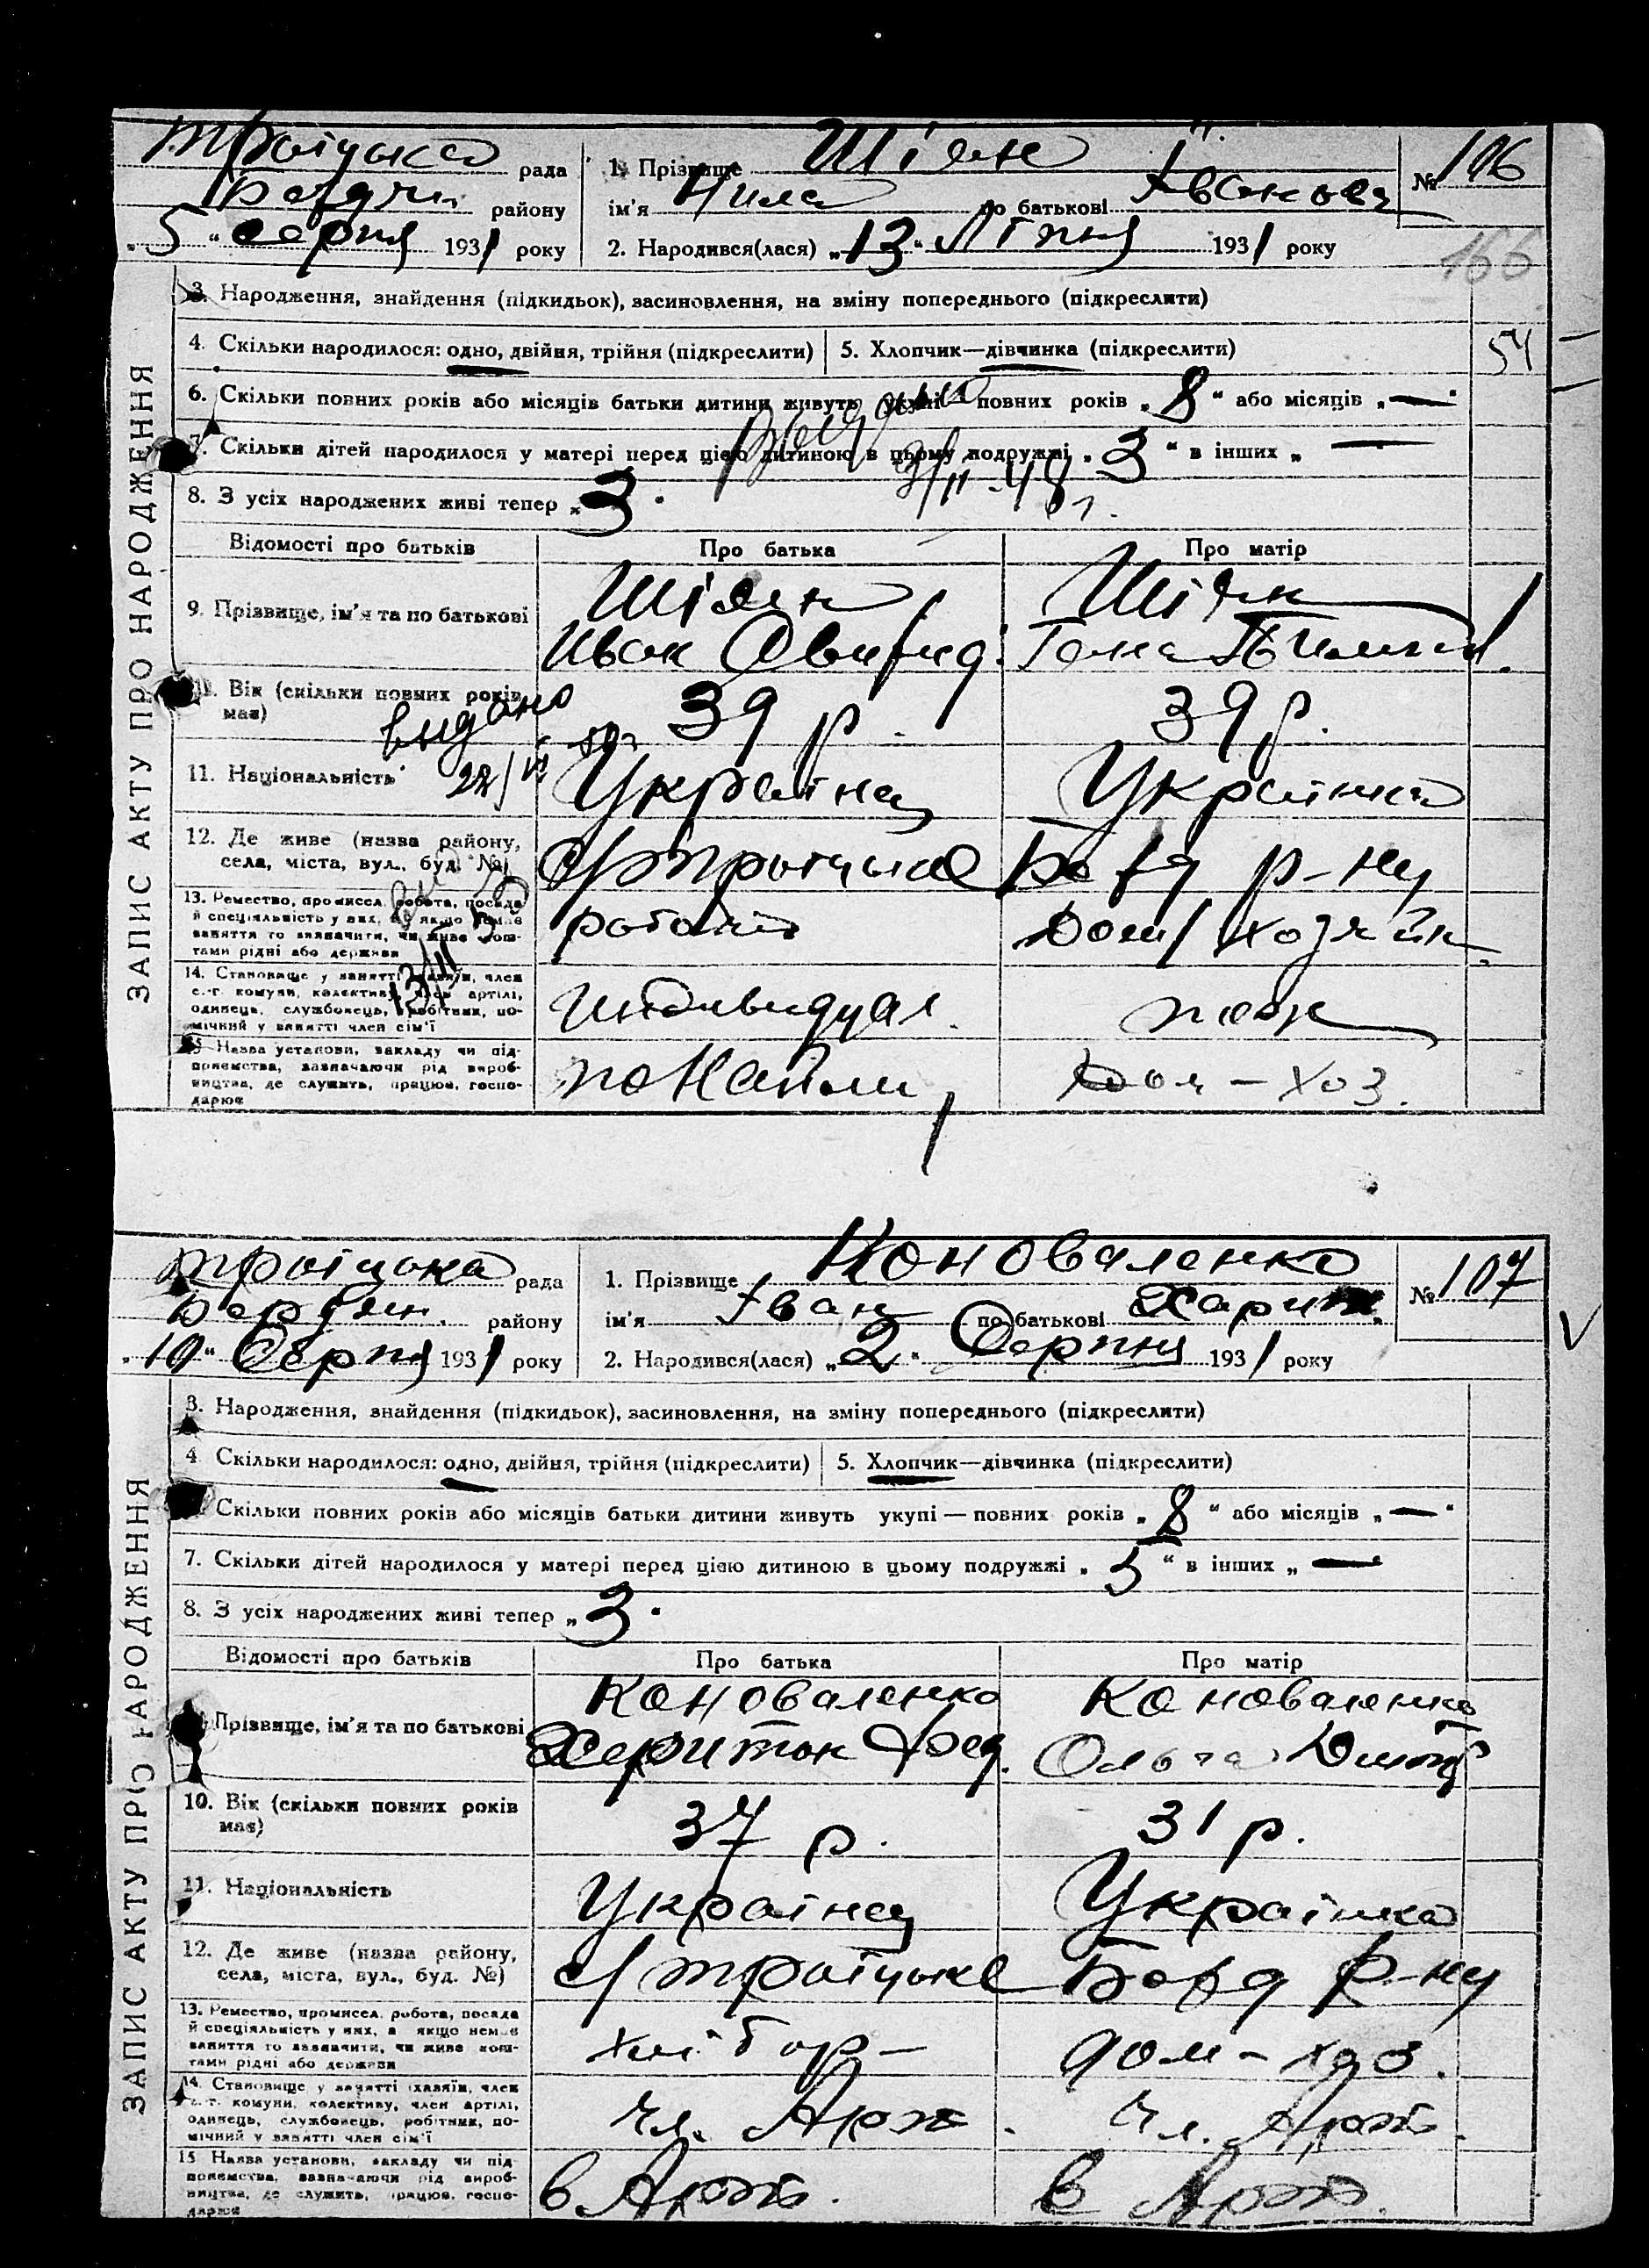 троіцька рада 1. Прізвище Шіян № 106
Бердян. району ім'я Нила по батькові Іванова
„5“ серпня 1931 року 2. Народився(лася) „13“ Ліпня 1931 року
166
3. Народження, знайдення (підкидьок), засиновлення, на зміну попереднього (підкреслити)
4. Скільки народилося: одно, двійня, трійня (підкреслити) 5. Хлопчик—дівчинка (підкреслити)
54
6. Скільки повних років або місяців батьки дитини живуть укупі — повних років „8“ або місяців „—“
7. Скільки дітей народилося у матері перед цією дитиною в цьому подружжі „3“ в інших „—
8. З усіх народжених живі тепер „3“
Відомості про батьків Про батька Про матір
9. Прізвище, ім'я та по батькові Шіян Шіян
Иван
Вік (скільки повних років має) 39 р. 39 р.
видано
11. Національність Украінец Украинка
12. Де живе (назва району, с/троіцьке Берд р-ну
села, міста, вул., буд. №)
13. Ремество, промисел, робота, посада
й спеціяльність у них, а якщо немає
заняття то зазначити, чи живе кош-
тами рідні або держави
Дом/хозяйк
14. Становище у занятті хазяїн, член
с.-г. комуни, колективу, член артілі,
одинець, службовець, робітник, по-
мічний у занятті член сім'ї
Индивидуал.
15. Назва установи, закладу чи під-
приємства, зазначаючи рід вироб-
ництва, де служить, працює, госпо-
дарює
по Найми Дом – хоз.
ЗАПИС АКТУ ПРО НАРОДЖЕННЯ
троіцька рада 1. Прізвище Коноваленко № 107
Бердян. району ім'я Іван по батькові Харит
„10“ Серпня 1931 року 2. Народився(лася) „2“ Серпня 1931 року
3. Народження, знайдення (підкидьок), засиновлення, на зміну попереднього (підкреслити)
4 Скільки народилося: одно, двійня, трійня (підкреслити) 5. Хлопчик—дівчинка (підкреслити)
Скільки повних років або місяців батьки дитини живуть укупі — повних років „8“ або місяців „—“
7. Скільки дітей народилося у матері перед цією дитиною в цьому подружжі „5“ в інших „—“
8. З усіх народжених живі тепер „3“
Відомості про батьків Про батька Про матір
Прізвище, ім'я та по батькові Коноваленко Коноваленко
Харитон Фед. Ольга Дмитр
10. Вік (скільки повних років має) 37 р. 31 р.
11. Національність Украінец Украінка
12. Де живе (назва району, с/троіцьке Берд р-ну
села, міста, вул., буд. №)
13. Ремество, промисел, робота, посада
й спеціяльність у них, а якщо немає
заняття то зазначити, чи живе кош-
тами рідні або держави
хлібор– дом – хоз.
14. Становище у занятті хазяїн, член
с.-г. комуни, колективу, член артілі,
одинець, службовець, робітник, по-
мічний у занятті член сім'ї
чл. Арт. чл. Арт.
15 Назва установи, закладу чи під-
приємства, зазначаючи рід вироб-
ництва, де служить, працює, госпо-
дарює
в Арт. в Арт.
ЗАПИС АКТУ ПРО НАРОДЖЕННЯ